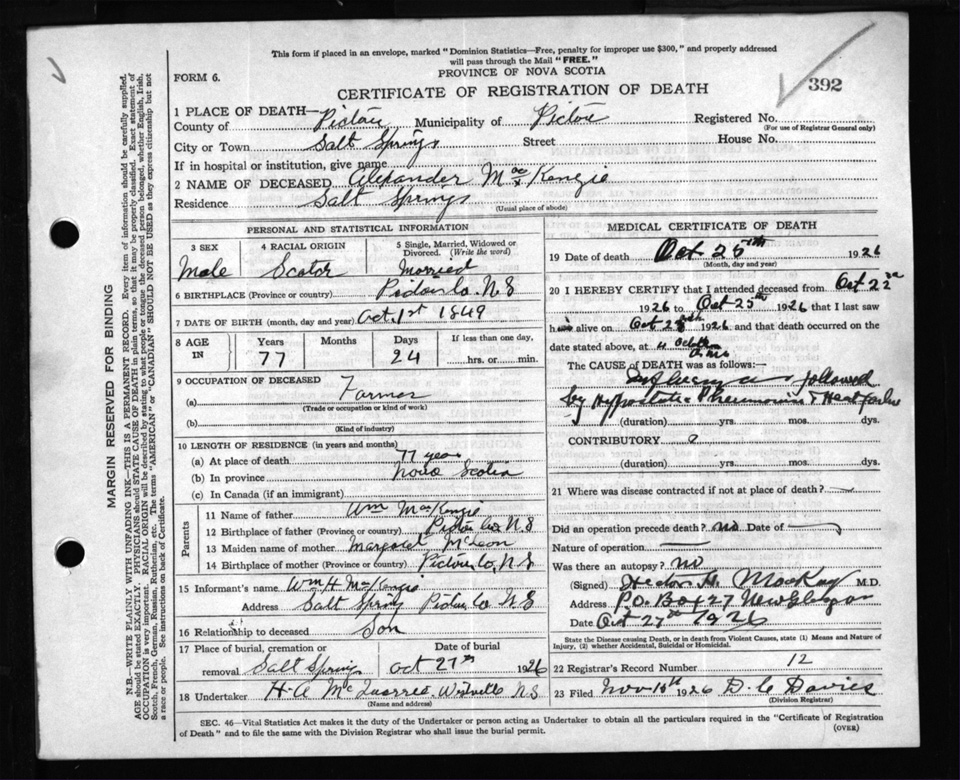 This form if placed in an envelope, marked "Dominion Statistics—Free, penalty for improper use $300," and properly addressed
will pass through the Mail "FREE."
FORM 6.
PROVINCE OF NOVA SCOTIA
CERTIFICATE OF REGISTRATION OF DEATH
392
1 PLACE OF DEATH—
County of Pictou Municipality of Pictou Registered No.
(For use of Registrar General only)
City or Town Salt Springs Street House No.
If in hospital or institution, give name
2 NAME OF DECEASED Alexander MacKenzie
Residence Salt Springs
(Usual place of abode)
PERSONAL AND STATISTICAL INFORMATION
3 SEX 4 RACIAL ORIGIN 5 Single, Married, Widowed or Divorced. (Write the word)
Male Scotch Married
6 BIRTHPLACE (Province or country) Pictou Co. N.S
7 DATE OF BIRTH (month, day and year) Oct. 1st 1849
8 AGE IN Years Months Days If less than one day,
77 24 hrs. or min.
9 OCCUPATION OF DECEASED
(a) Farmer
(Trade or occupation or kind of work)
(b)
(Kind of industry)
10 LENGTH OF RESIDENCE (in years and months)
(a) At place of death 77 years
(b) In province Nova Scotia
(c) In Canada (if an immigrant)
Parents
11 Name of father Wm MacKenzie
12 Birthplace of father (Province or country) Pictou Co. N.S
13 Maiden name of mother Margaret McLeon
14 Birthplace of mother (Province or country) Pictou Co, N.S
15 Informant's name Wm H. MacKenzie
Address Salt Spring Pictou Co N.S
16 Relationship to deceased Son
17 Place of burial, cremation or removal Date of burial
Salt Springs Oct 27th 1926
18 Undertaker H-A McQuarrie Westville N.S
(Name and address)
MEDICAL CERTIFICATE OF DEATH
19 Date of death Oct 25th 1926
(Month, day and year)
20 I HEREBY CERTIFY that I attended deceased from Oct 22nd
1926 to Oct 25th 1926 that I last saw
him alive on Oct 1926 and that death occurred on the
date stated above, at
The CAUSE OF DEATH was as follows:—
followed
by Hypostatic Pneumonia & Heart failure
(duration) yrs. mos. dys.
CONTRIBUTORY
(duration) yrs. mos. dys.
21 Where was disease contracted if not at place of death?
Did an operation precede death? no Date of
Nature of operation
Was there an autopsy? no
(Signed) Hector H. MacKay M.D.
Address P.O. Box 27 New Glasgow
Date Oct 27th 1926
State the Disease causing Death, or in death from Violent Causes, state (1) Means and Nature of
Injury, (2) whether Accidental, Suicidal or Homicidal.
22 Registrar's Record Number 12
23 Filed Nov 10th 1926 D. C Davies
(Division Registrar)
SEC. 46—Vital Statistics Act makes it the duty of the Undertaker or person acting as Undertaker to obtain all the particulars required in the "Certificate of Registration
of Death" and to file the same with the Division Registrar who shall issue the burial permit.
(OVER)
MARGIN RESERVED FOR BINDING
N.B.—WRITE PLAINLY WITH UNFADING INK—THIS IS A PERMANENT RECORD. Every item of information should be carefully supplied.
AGE should be stated EXACTLY. PHYSICIANS should STATE CAUSE OF DEATH in plain terms, so that it may be properly classified. Exact statement of
OCCUPATION is very important. RACIAL ORIGIN will be described by stating to what people or tongue the deceased person belonged, whether English, Irish,
Scotch, French, German, Russian, Ruthenian, etc. The terms "AMERICAN" or "CANADIAN" SHOULD NOT BE USED as they express citizenship but not
a race or people. See instructions on back of Certificate.